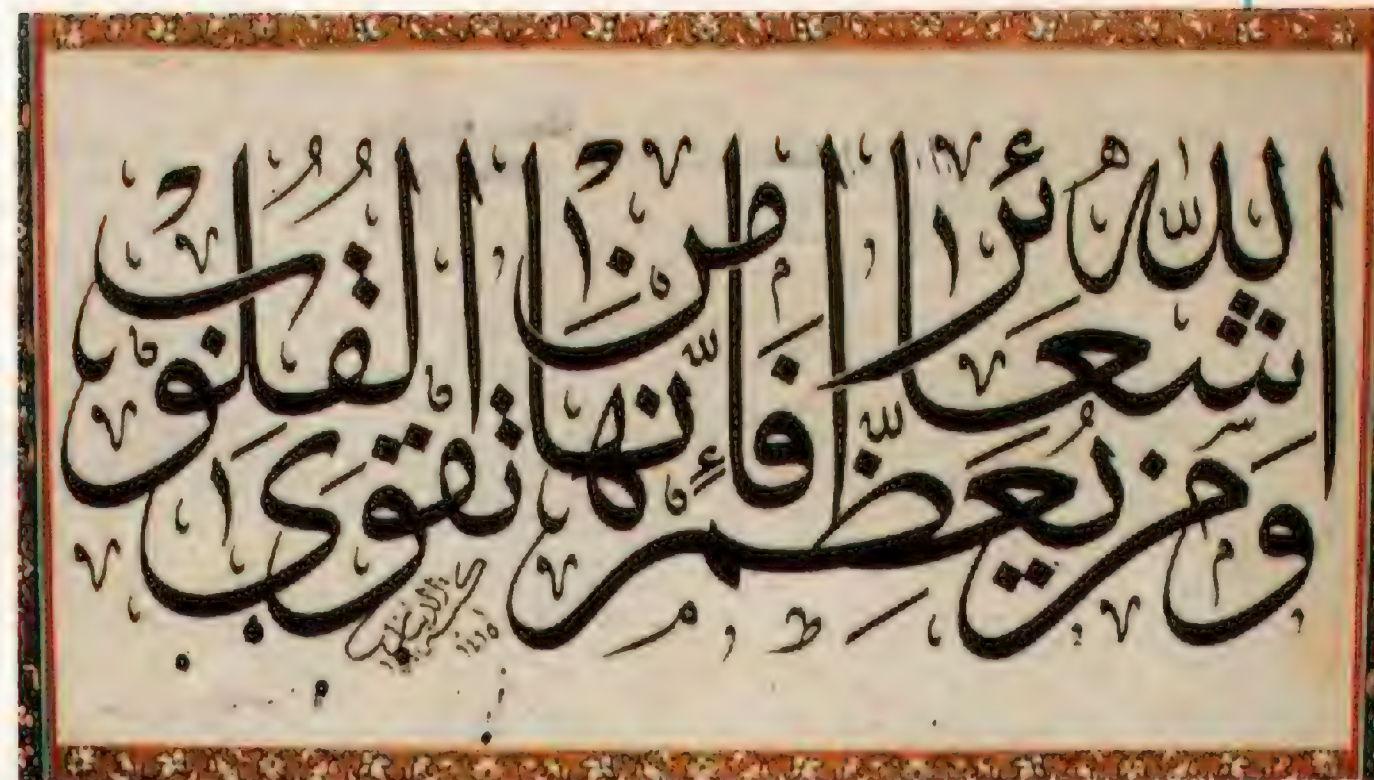 وَمَنْ يُعَظِّمْ شَعَائِرَ اللّٰهِ فَإِنَّهَا مِنْ تَقْوَى الْقُلُوبِ
١٤١٥